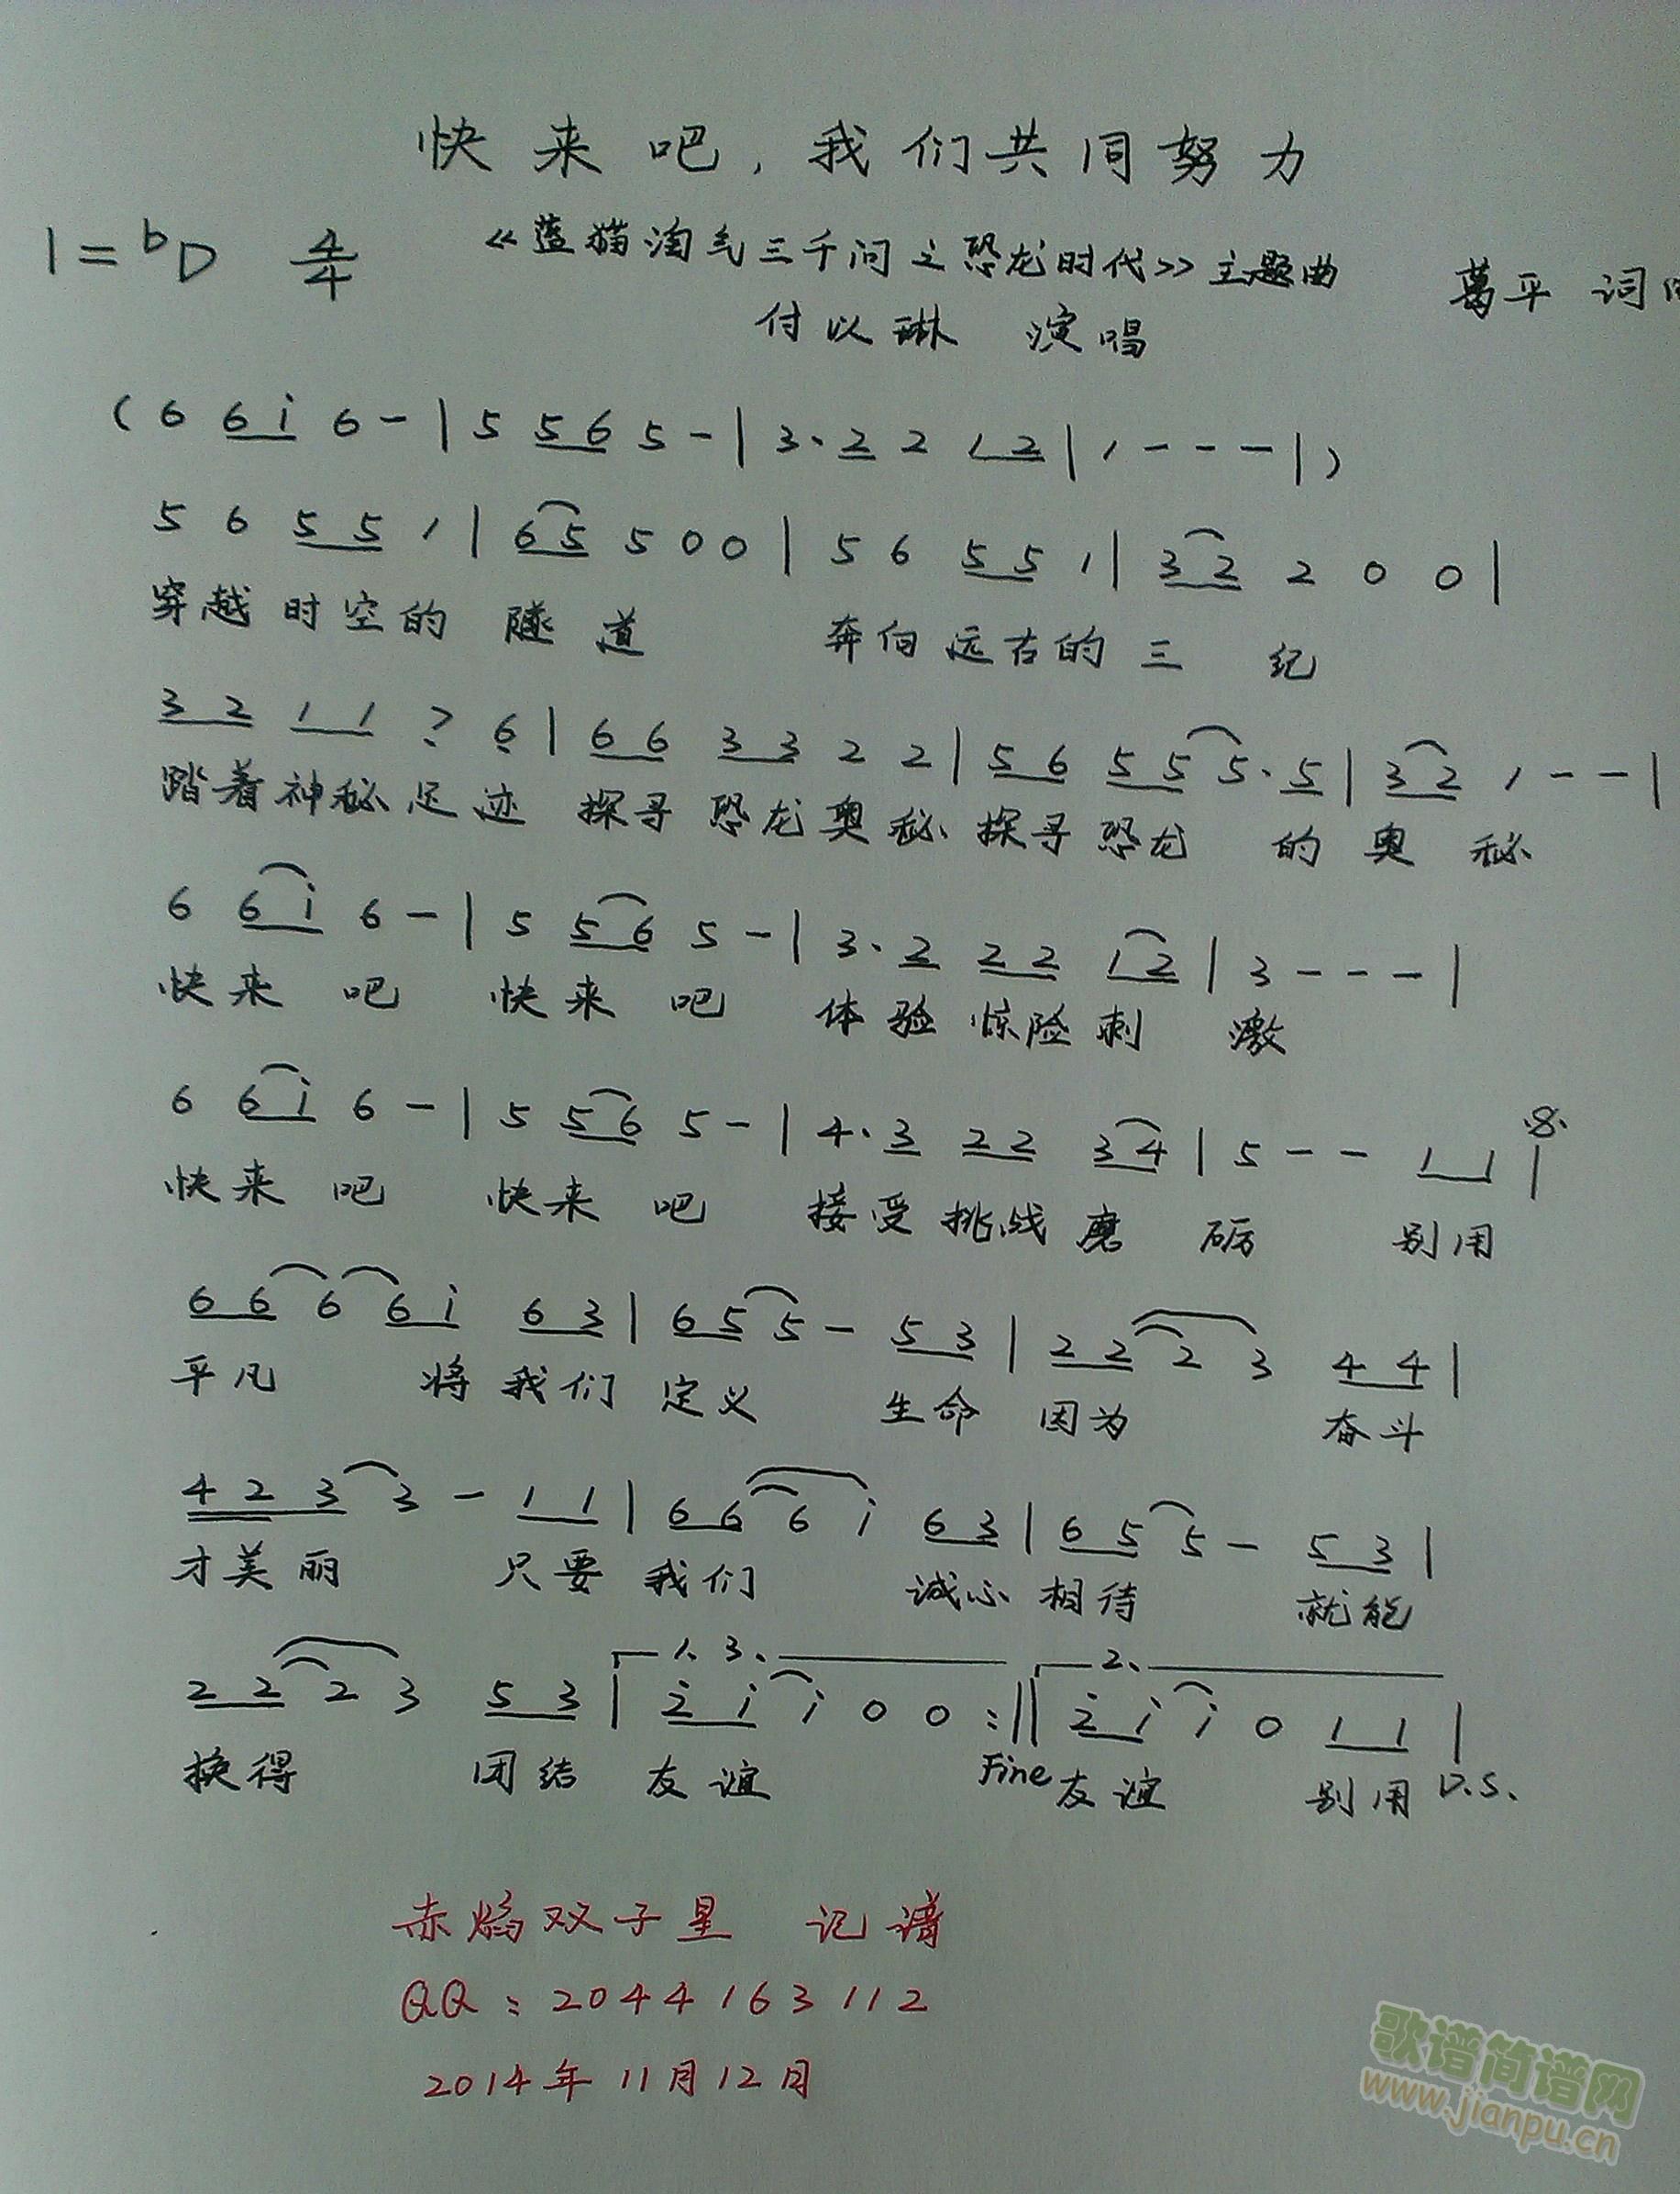 快来吧,我们共同努力
1=bD 4/4 《蓝猫淘气三千问之恐龙时代》主题曲 葛平 词
付以琳 演唱
(6 6i 6-|5 56 5-|3·2 2 12|1---|)
5 6 55 1|65 5 0 0|5 6 55 1|32 2 0 0|
穿越时空的隧道 奔向远古的三纪
32 11 7̣ 6̣|66 33 2 2|56 55 5·5|32 1--|
踏着神秘足迹 探寻恐龙奥秘 探寻恐龙 的奥秘
6 6i 6-|5 56 5-|3·2 22 12|3---|
快来吧 快来吧 体验惊险刺激
6 6i 6-|5 56 5-|4·3 22 34|5-- 11|
快来吧 快来吧 接受挑战磨砺 别用
66 6 6i 63|65 5- 53|22 2 3 44|
平凡 将我们定义 生命因为 奋斗
423 3- 11|66 6 i 63|65 5- 53|
才美丽 只要我们 诚心相待 就能
1、3、 2、
22 2 3 53|2̇i i 0 0:||2̇i i 0 11|
换得 团结友谊 Fine 友谊 别用 D.S.
赤焰双子星 记谱
QQ:2044163112
2014年11月12日
歌谱简谱网
www.jianpu.cn